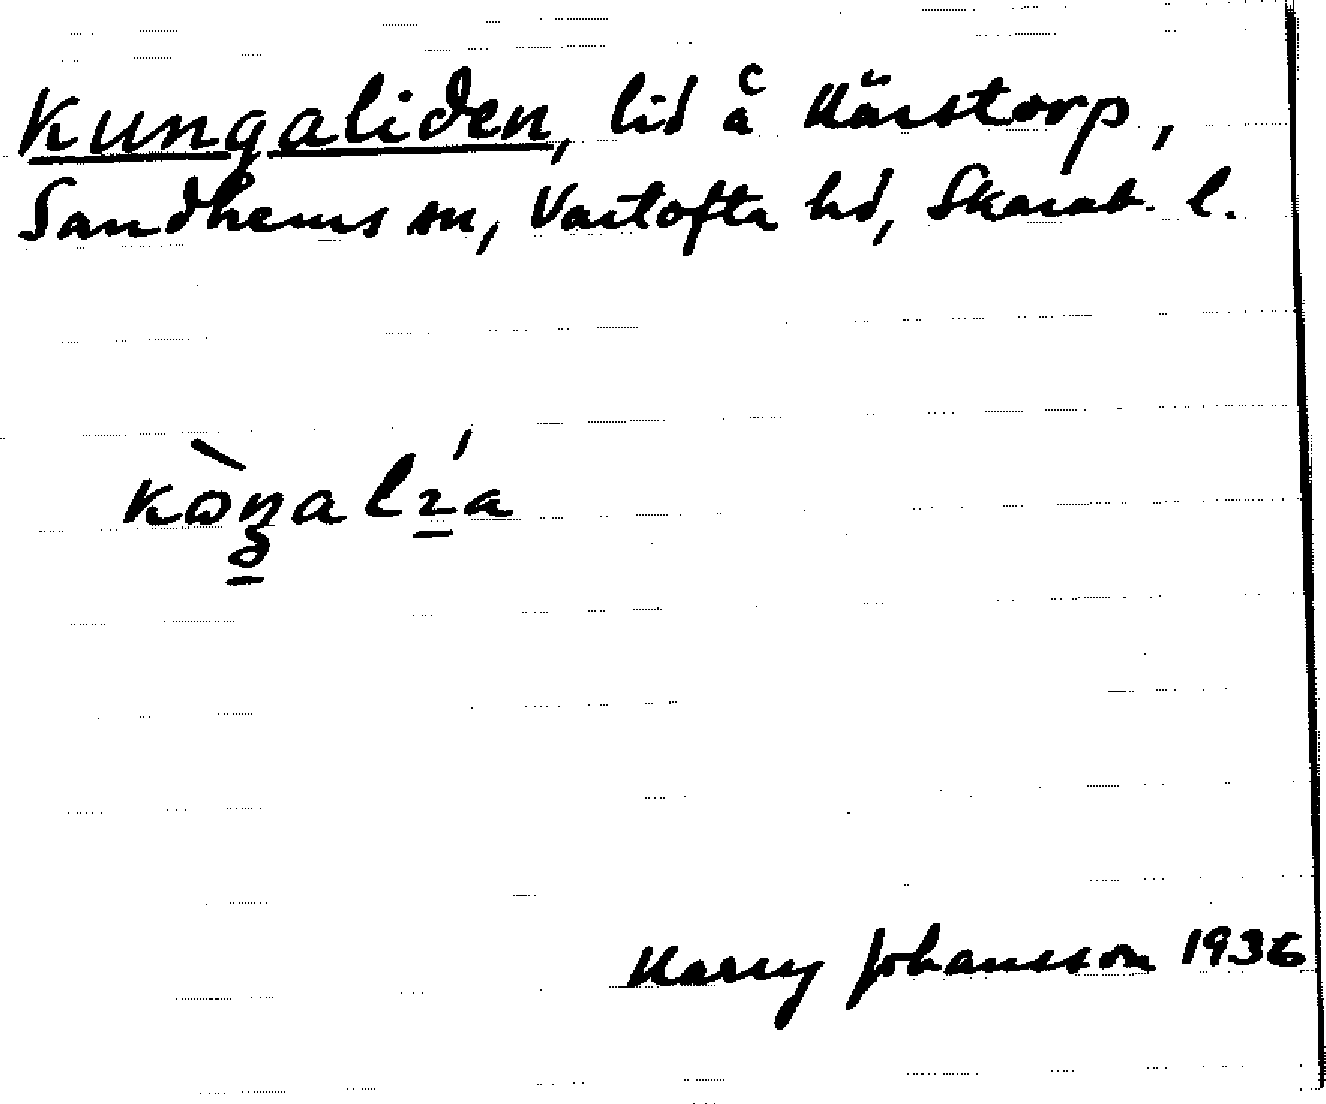 Kungaliden, lid å Härstorp,
Sandhems sn, Vartofta hd, Skarab. l.
Harry Johansson 1936